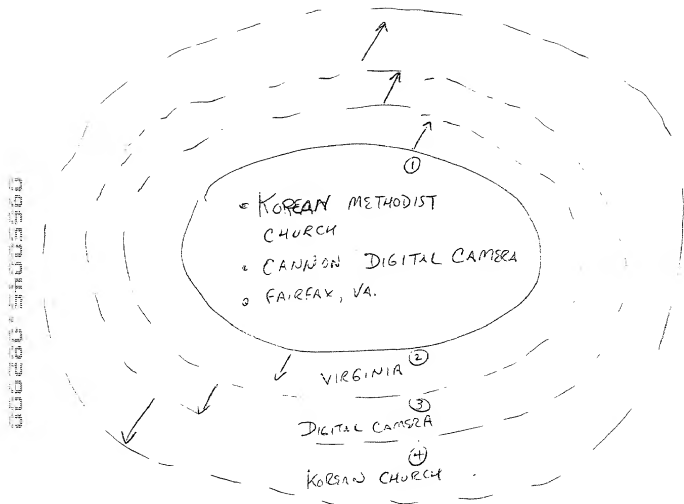 ①
• KOREAN METHODIST
CHURCH
• CANNON DIGITAL CAMERA
• FAIRFAX, VA.
②
VIRGINIA
③
DIGITAL CAMERA
④
KOREAN CHURCH